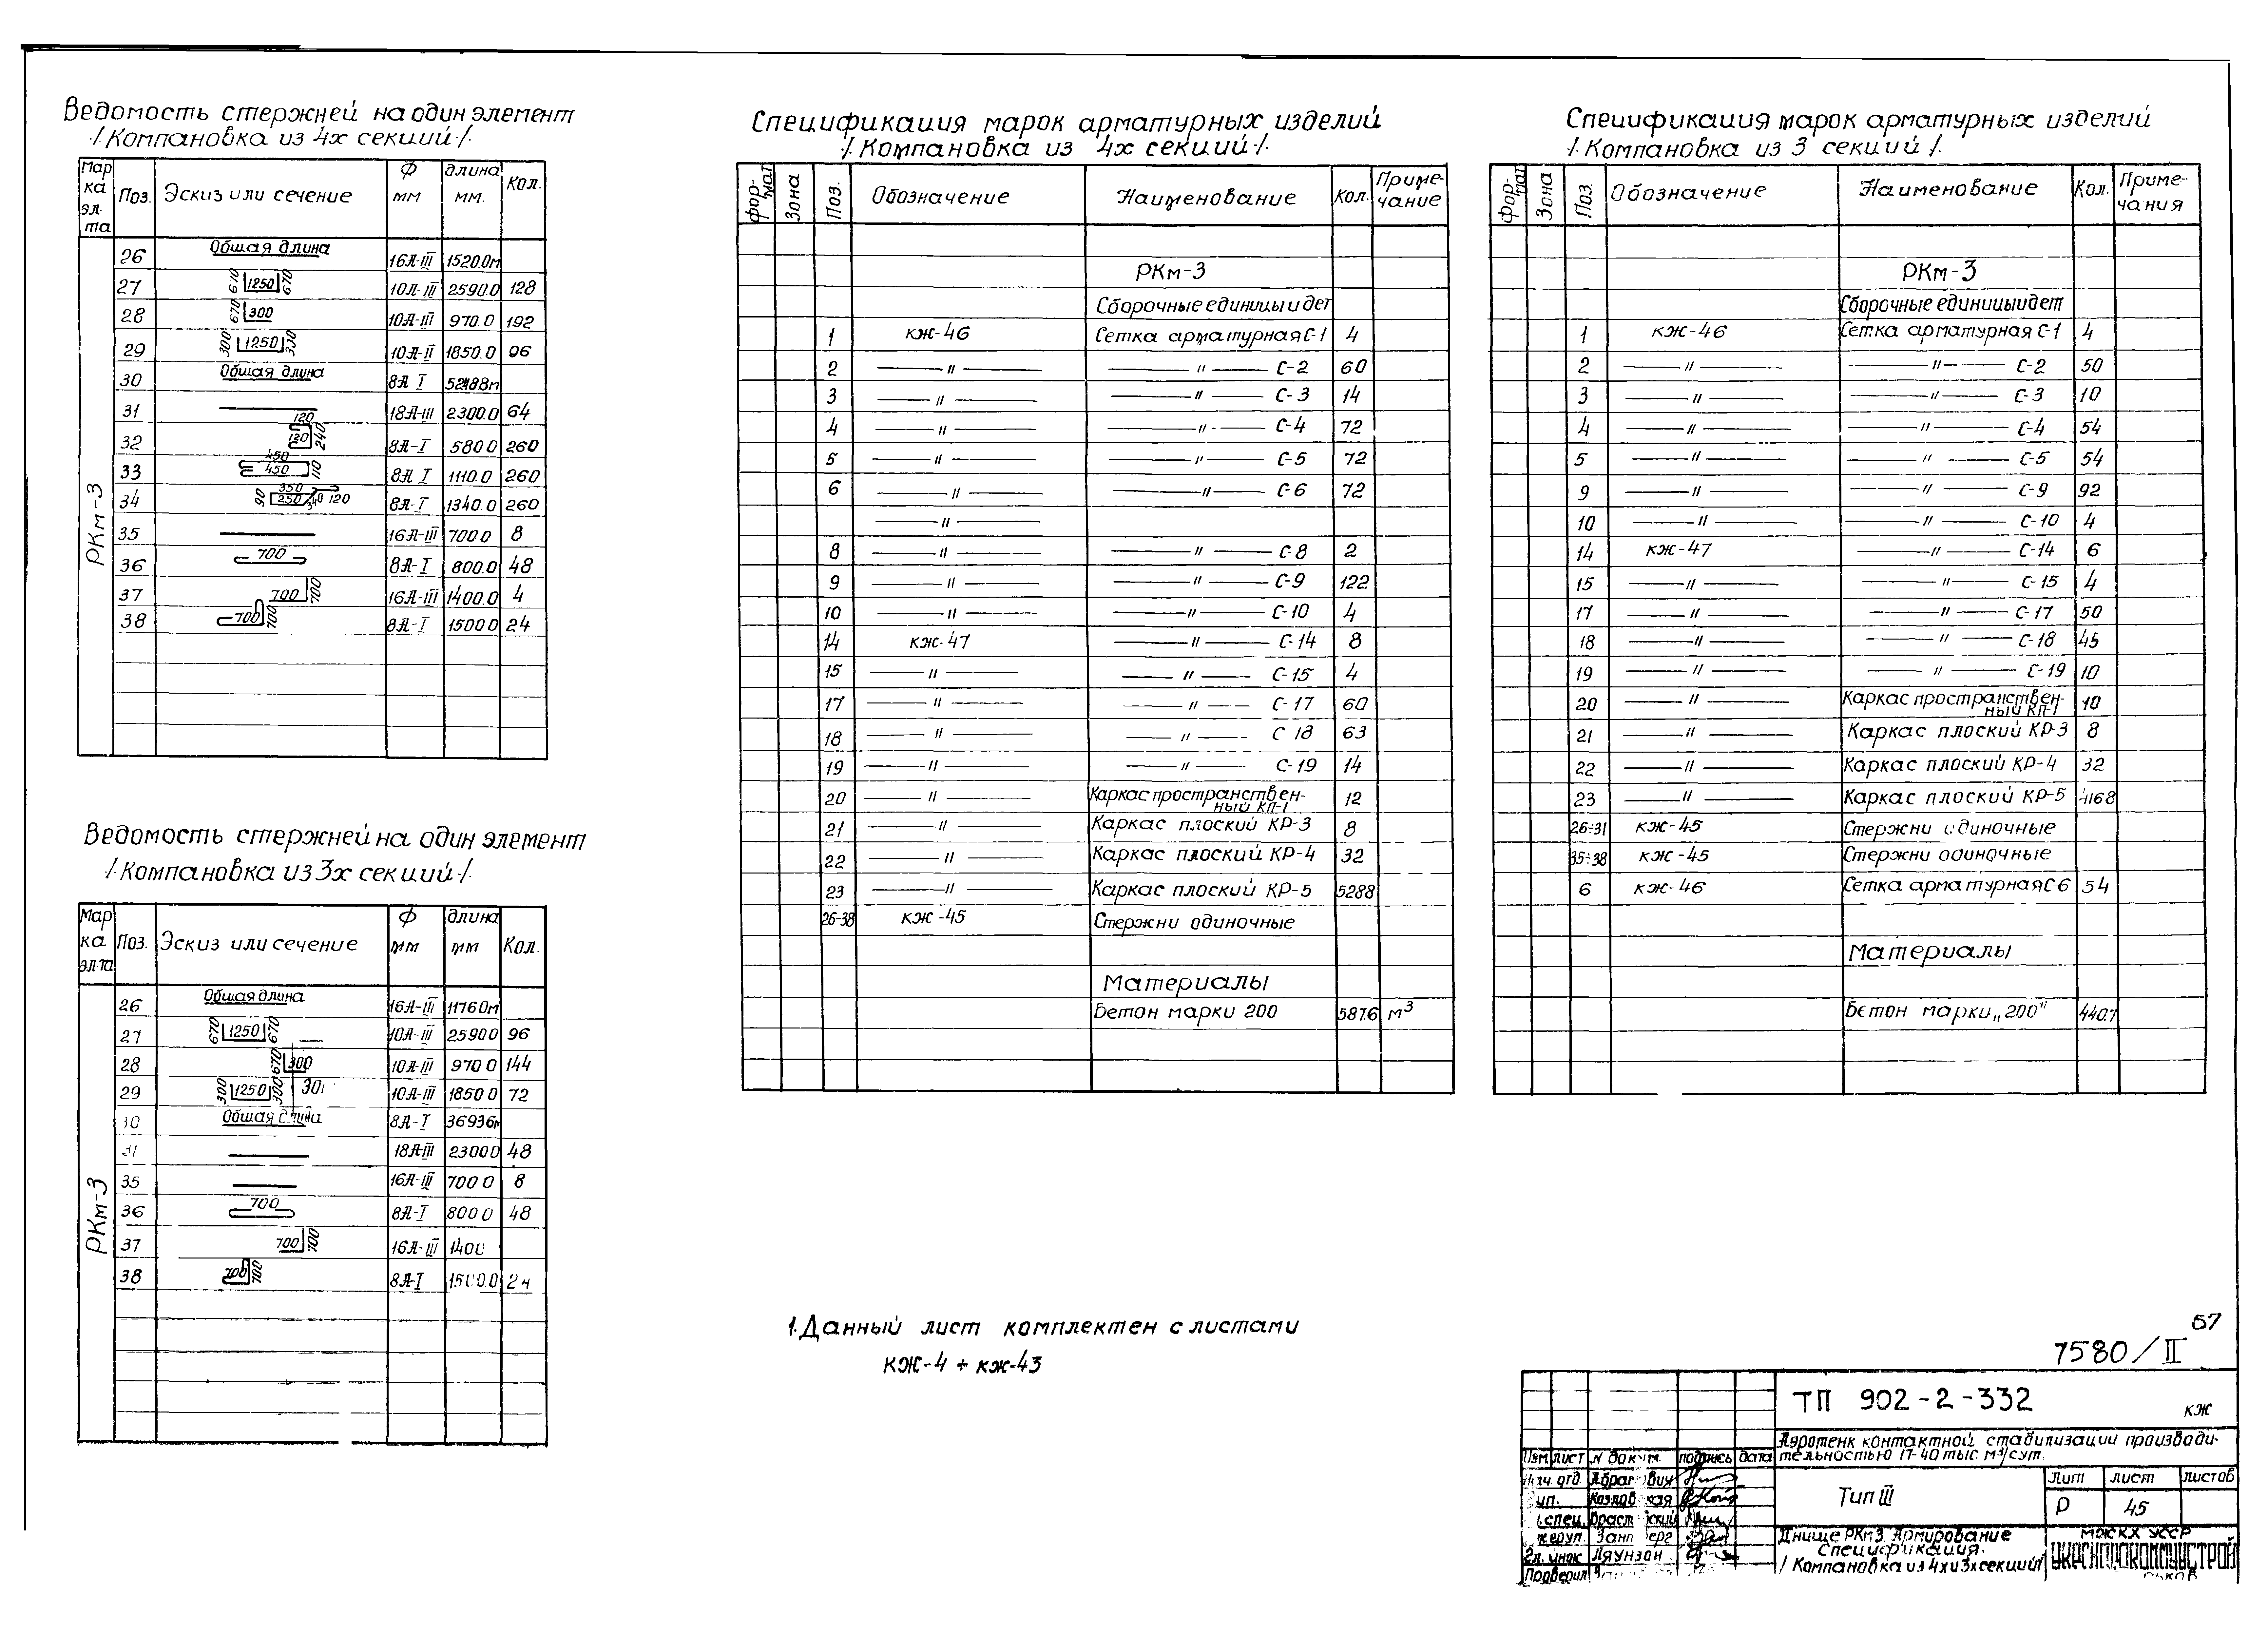 Ведомость стержней на один элемент
/Компановка из 4х секций/
Марка эл-та Поз. Эскиз или сечение Ф мм длина мм. Кол.
РКм-3
26 Общая длина 16А-III 1520.0м
27 670 1250 670 10А-III 2590.0 128
28 670 300 10А-III 970.0 192
29 300 1250 300 10А-II 1850.0 96
30 Общая длина 8А I
31 18А-III 2300.0 64
32 120 120 240 8А-I 580 0 260
33 450 450 110 8А I 1110.0 260
34 90 350 250 120 8А-I 1340.0 260
35 16А-III 700 0 8
36 700 8А-I 800.0 48
37 700 700 16А-III 1400.0 4
38 700 700 8А-I 1500 0 24
Ведомость стержней на один элемент
/Компановка из 3х секций/
Марка эл-та Поз. Эскиз или сечение Ф мм длина мм Кол.
РКм-3
26 Общая длина 16А-III 1176 0м
27 670 1250 670 10А-III 2590 0 96
28 670 300 10А-III 970 0 144
29 300 1250 300 10А-III 1850 0 72
30 Общая длина 8А-I 36936м
31 18А-III 2300 0 48
35 16А-III 700 0 8
36 700 8А-I 800 0 48
37 700 700 16А-III 1400
38 700 700 8А-I 1500.0 24
Спецификация марок арматурных изделий
/Компановка из 4х секций/
Формат Зона Поз. Обозначение Наименование Кол. Примечание
РКм-3
Сборочные единицы и дет
1 кж-46 Сетка арматурная С-1 4
2 — " — — " — С-2 60
3 — " — — " — С-3 14
4 — " — — " — С-4 72
5 — " — — " — С-5 72
6 — " — — " — С-6 72
— " —
8 — " — — " — С-8 2
9 — " — — " — С-9 122
10 — " — — " — С-10 4
14 кж-47 — " — С-14 8
15 — " — — " — С-15 4
17 — " — — " — С-17 60
18 — " — — " — С 18 63
19 — " — — " — С-19 14
20 — " — Каркас пространственный КП-1 12
21 — " — Каркас плоский КР-3 8
22 — " — Каркас плоский КР-4 32
23 — " — Каркас плоский КР-5 5288
26-38 кж-45 Стержни одиночные
Материалы
Бетон марки 200 587.6 м³
Спецификация марок арматурных изделий
/Компановка из 3 секций/
Формат Зона Поз Обозначение Наименование Кол. Примечания
РКм-3
Сборочные единицы и дет
1 кж-46 Сетка арматурная С-1 4
2 — " — — " — С-2 50
3 — " — — " — С-3 10
4 — " — — " — С-4 54
5 — " — — " — С-5 54
9 — " — — " — С-9 92
10 — " — — " — С-10 4
14 кж-47 — " — С-14 6
15 — " — — " — С-15 4
17 — " — — " — С-17 50
18 — " — — " — С-18 45
19 — " — — " — С-19 10
20 — " — Каркас пространственный КП-1 10
21 — " — Каркас плоский КР-3 8
22 — " — Каркас плоский КР-4 32
23 — " — Каркас плоский КР-5 4168
26÷31 кж-45 Стержни одиночные
35÷38 кж-45 Стержни одиночные
6 кж-46 Сетка арматурная С-6 54
Материалы
Бетон марки „200" 440.7
1. Данный лист комплектен с листами
кж-4 ÷ кж-43
57
7580/II
ТП 902-2-332
кж
Аэротенк контактной стабилизации производи-
тельностью 17-40 тыс м³/сут.
Изм лист N докум. подпись дата
Нач. отд. Абрамович
Гип. Козловская
спец.
Гл. инж Ляунзон
Проверил
Тип III
Лит лист листов
Р 45
Днище РКм3. Армирование
Спецификация.
/Компановка из 4х и 3х секций/
МЖКХ УССР
УКРГИПРОКОММУНСТРОЙ